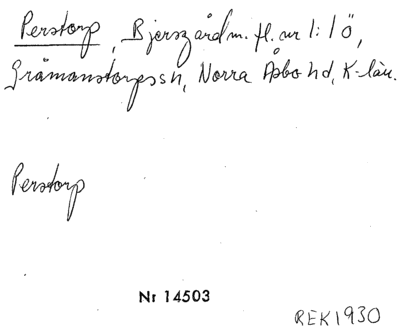 Perstorp, Bjersgård m. fl. nr 1:1 Ö,
Gråmanstorps sn, Norra Åsbo hd, K-län.
Perstorp
Nr 14503
REK1930